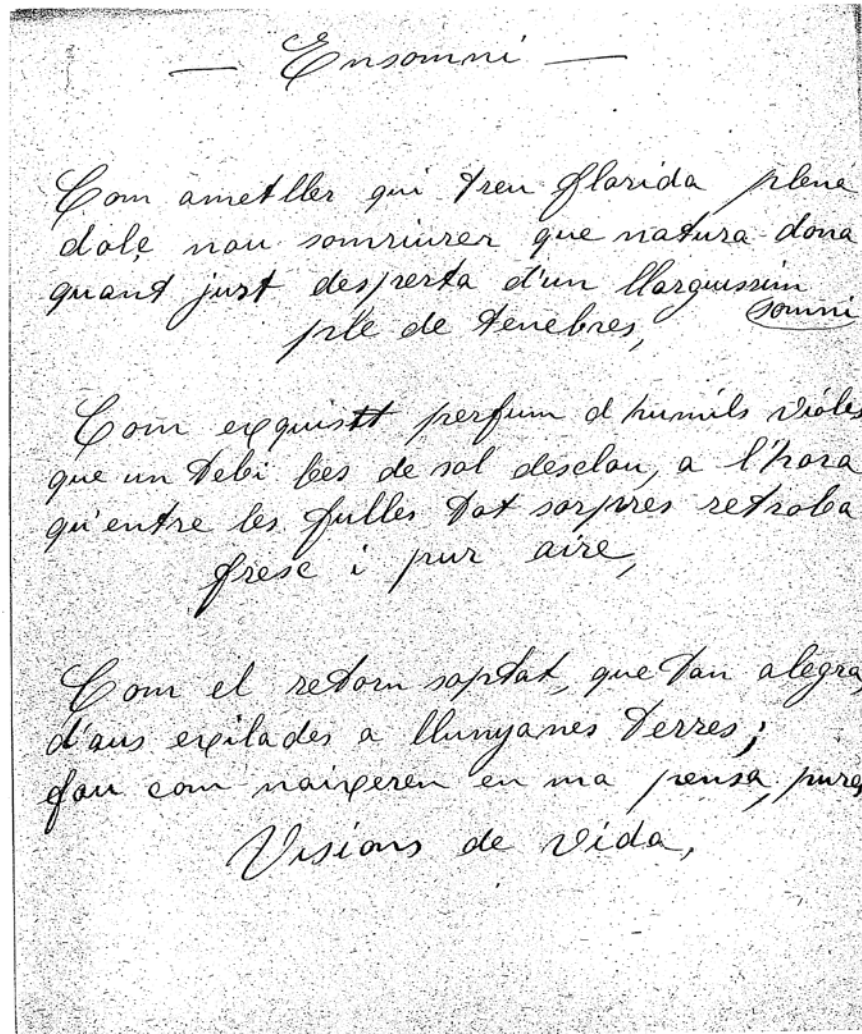 — Ensomni —
Com ametller qui treu florida plena
dolç nou somriurer que natura dona
quant just desperta d'un llarguissim
somni
ple de tenebres,
Com exquisit perfum d'humils violes
que un tebi bes de sol desclou, a l'hora
qu'entre les fulles tot sorpres retroba
fresc i pur aire,
Com el retorn soptat, que tan alegra,
d'aus exilades a llunyanes terres;
fou com naixeren en ma pensa, pures
Visions de vida,